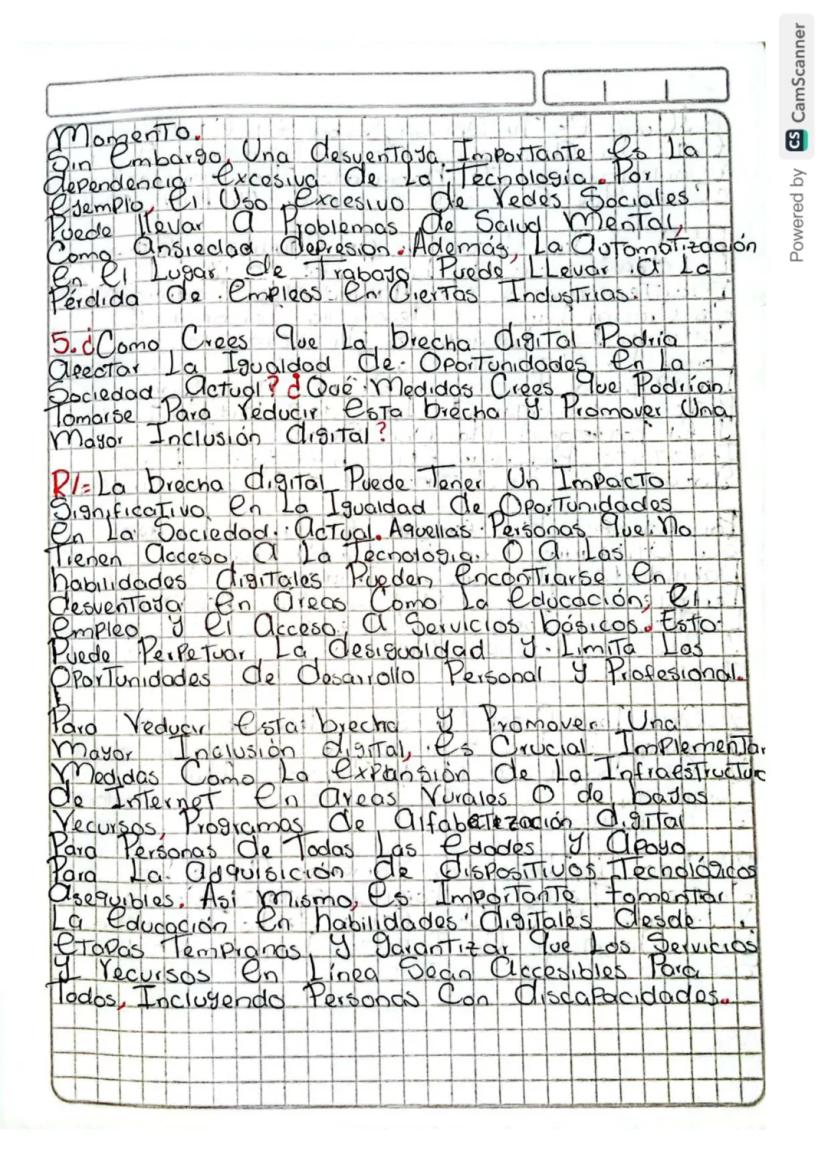 Momento.
Sin embargo, Una desventaja Importante es La
dependencia excesiva de La Tecnología. Por
ejemplo, el Uso excesivo de redes Sociales
Puede llevar a Problemas de Salud Mental,
Como ansiedad depresion. Además, La automatización
en el Lugar de Trabajo Puede LLevar a La
Pérdida de empleos en Ciertas Industrias.
5. ¿Como Crees que La brecha digital Podría
afectar La Igualdad de Oportunidades en La
Sociedad actual? ¿Qué Medidas Crees que Podrían
Tomarse Para reducir esta brecha y Promover Una
Mayor Inclusión digital?
R/= La brecha digital Puede Tener Un Impacto
Significativo en La Igualdad de Oportunidades
en La Sociedad actual. Aquellas Personas que no
Tienen acceso a La Tecnología O a Las
habilidades digitales Pueden encontrarse en
desventaja en areas Como La educación, el
empleo y el acceso a Servicios básicos. Esto
Puede Perpetuar La desigualdad y Limita Las
Oportunidades de desarrollo Personal y Profesional.
Para reducir esta brecha y Promover Una
Mayor Inclusión digital, es Crucial Implementar
Medidas Como La expansión de La Infraestructur
de Internet en areas rurales O de bajos
recursos, Programas de alfabetezación digital
Para Personas de Todas Las edades y apoyo
Para La adquisición de dispositivos Tecnológicos
asequibles. Así mismo, es Importante fomentar
La educación en habilidades digitales desde
etapas Tempranas y garantizar que Los Servicios
y recursos en Línea Sean accesibles Para
Todos, Incluyendo Personas Con discapacidades.
Powered by CS CamScanner